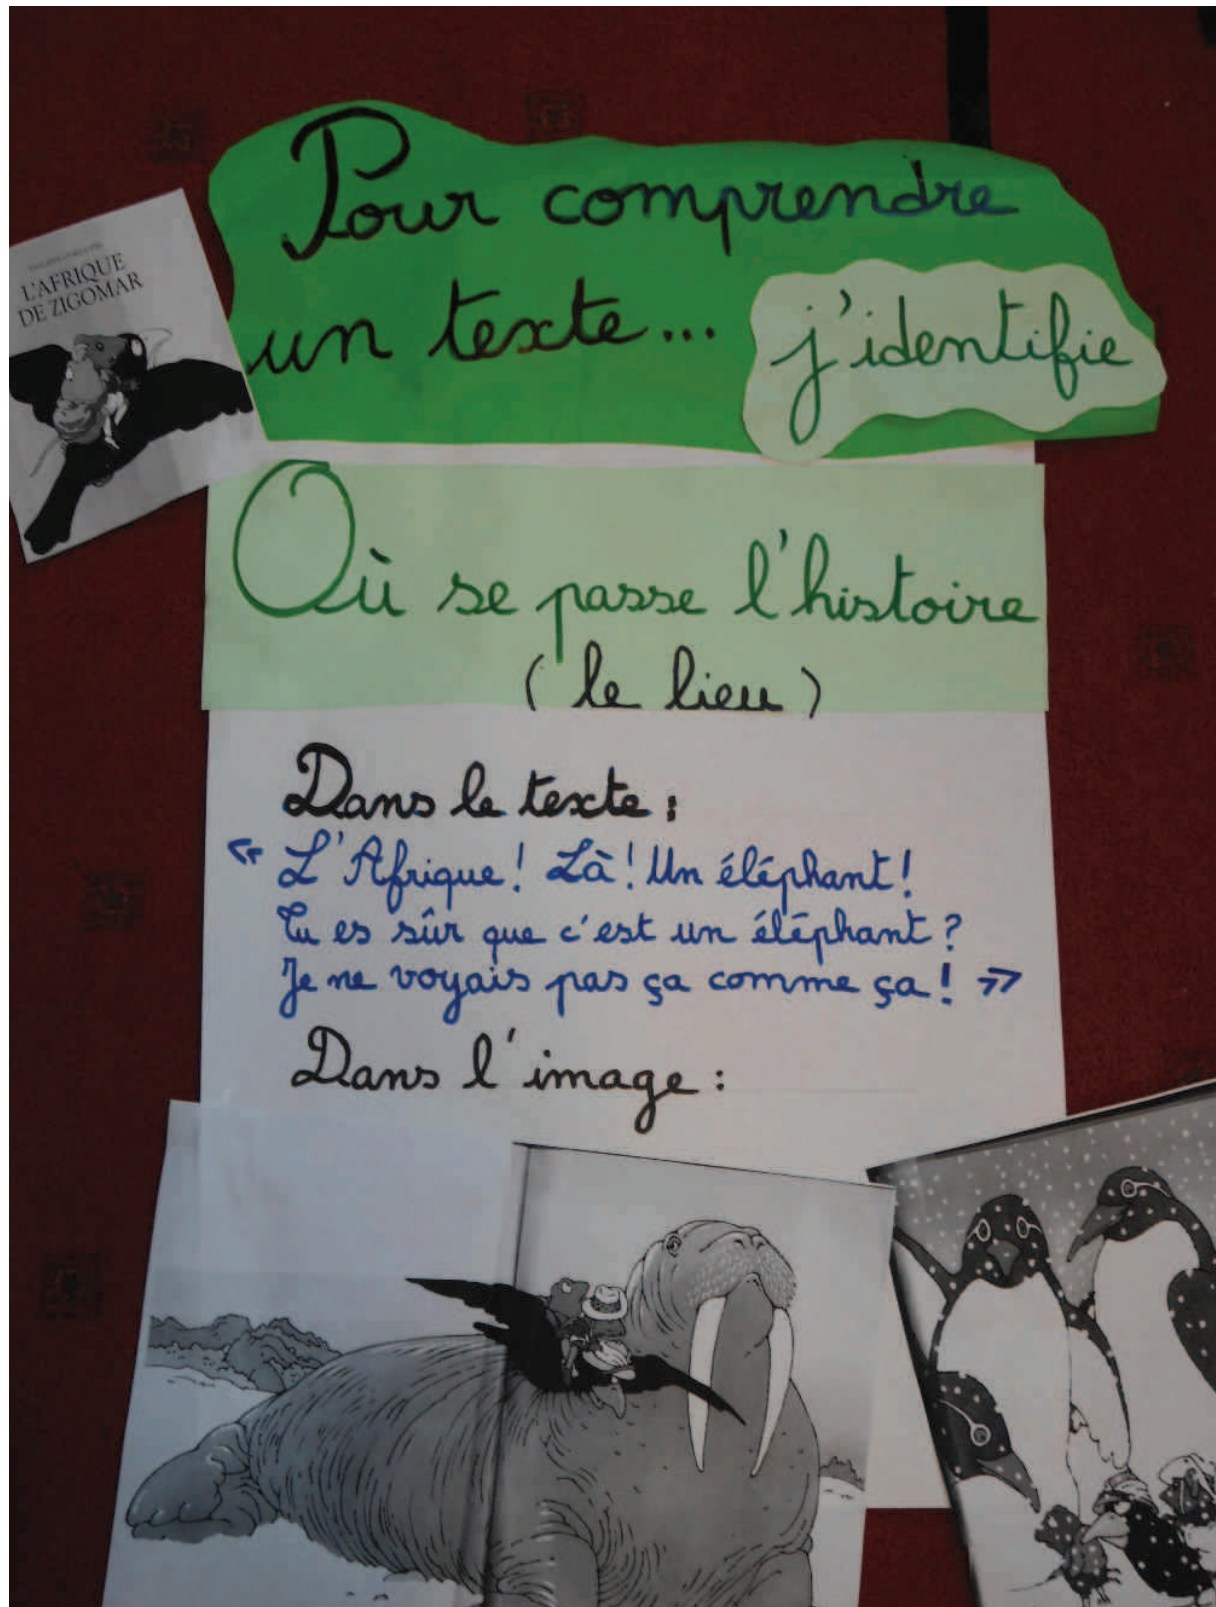 L'AFRIQUE
DE ZIGOMAR
Pour comprendre
un texte... j'identifie
Où se passe l'histoire
(le lieu)
Dans le texte :
« L'Afrique ! Là ! Un éléphant !
Tu es sûr que c'est un éléphant ?
Je ne voyais pas ça comme ça ! »
Dans l'image :